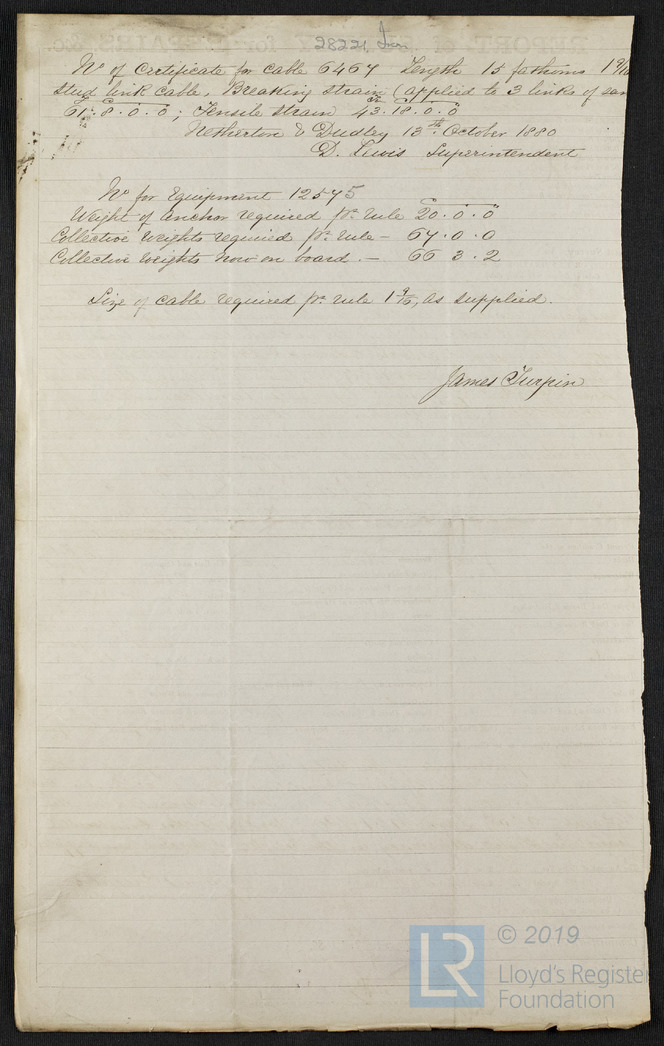 28221 Iron
No of Certificate for Cable 6467 Length 15 fathoms 1 9/16
stud link Cable. Breaking strain (applied to 3 links of sam
61.8.0.0; Tensile strain 43.18.0.0
Netherton & Dudley 13th October 1880
D. Lewis Superintendent
No for Equipment 12575
Weight of anchor required pr. rule 20.0.0
Collective weights required pr. rule – 67.0.0
Collective weights now on board. – 66 3.2
Size of cable required pr. rule 1 9/16, as supplied.
James Turpin
LR
© 2019
Lloyd's Register
Foundation